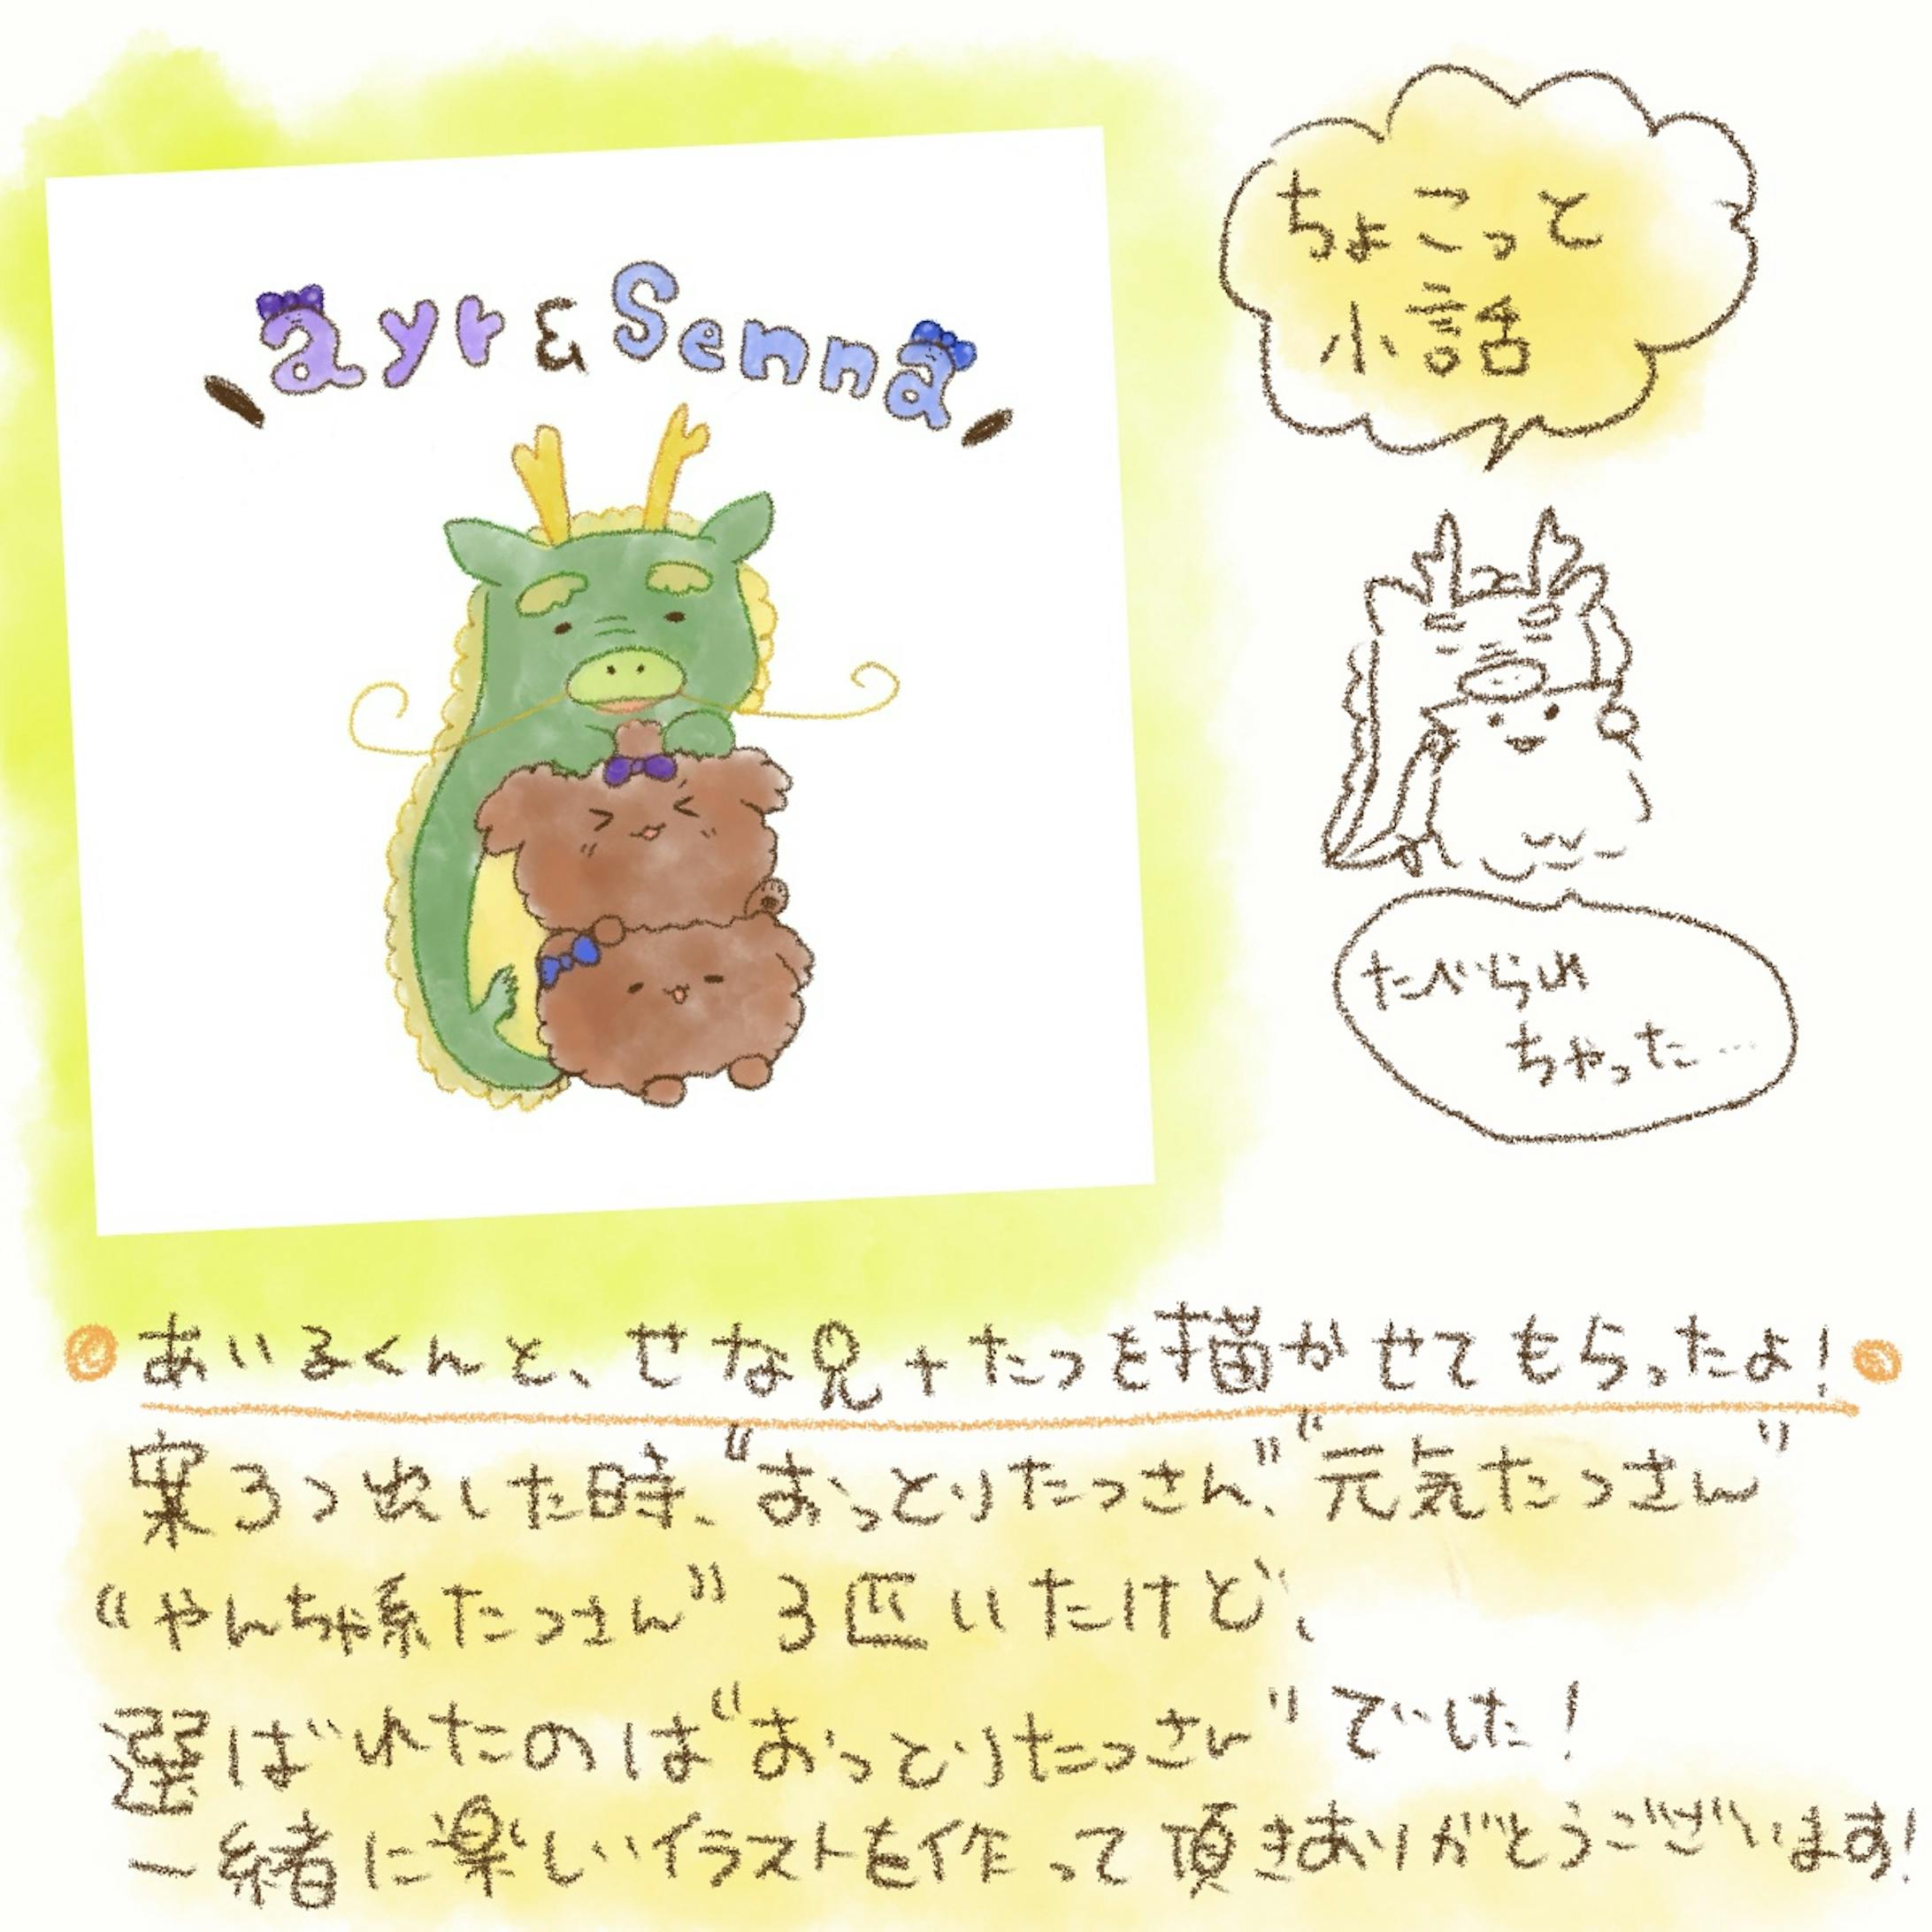 ayr & Senna
ちょこっと
小話
たべられ
ちゃった…
あいるくんと、せな兄+たつを描かせてもらったよ!
案3つ出した時、"おっとりたつさん"、"元気たつさん"
"やんちゃ系たつさん" 3匹いたけど、
選ばれたのは"おっとりたつさん"でした!
一緒に楽しいイラストを作って頂きありがとうございます!